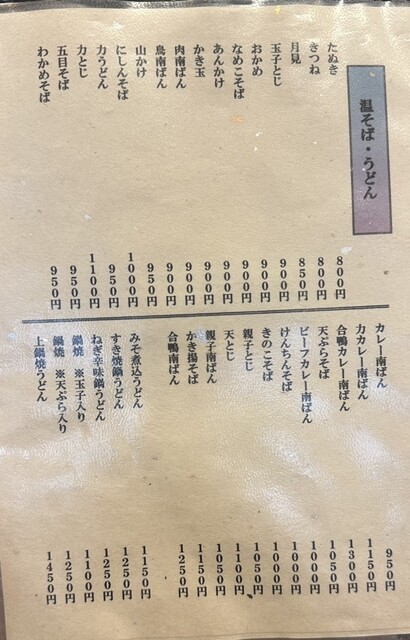 温そば・うどん
たぬき 800円
きつね 800円
月見 850円
玉子とじ 900円
おかめ 900円
なめこそば 900円
あんかけ 900円
かき玉 900円
肉南ばん 900円
鳥南ばん 900円
山かけ 950円
にしんそば 1000円
力うどん 950円
力とじ 1100円
五目そば 950円
わかめそば 950円
カレー南ばん 950円
力カレー南ばん 1150円
合鴨カレー南ばん 1300円
天ぷらそば 1050円
ビーフカレー南ばん 1000円
けんちんそば 1000円
きのこそば 1000円
親子とじ 1050円
天とじ 1100円
親子南ばん 1050円
かき揚そば 1150円
合鴨南ばん 1250円
みそ煮込うどん 1150円
すき焼鍋うどん 1250円
ねぎ辛味鍋うどん 1250円
鍋焼 ※玉子入り 1100円
鍋焼 ※天ぷら入り 1250円
上鍋焼うどん 1450円